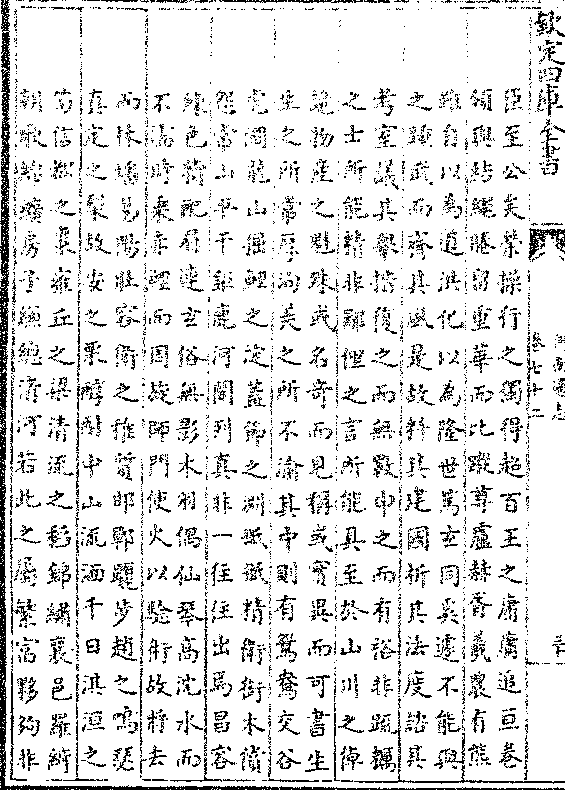 欽定四庫全書
河南通志
卷七十二
臣至公矣榮操行之獨得超百王之庸庸追亘卷
領與結繩睠留重華而比蹤尊盧赫胥羲農有熊
雖自以為道洪化以為隆世篤玄同奚遽不能與
之踵武而齊其風是故料其建國析其法度諮其
考室議其舉措復之而無斁申之而有裕非疏糲
之士所能精非鄙俚之言所能具至於山川之倬
詭物產之魁殊或名奇而見稱或實異而可書生
生之所常厚洵美之所不渝其中則有鴛鴦交谷
虎澗龍山掘鯉之淀蓋節之淵祗祗精衛銜木償
怨常山平干鉅鹿河間列真非一往往出焉昌容
練色犢配眉連玄俗無影木羽偶仙琴高沈水而
不濡時乘赤鯉而周旋師門使火以驗術故將去
而林燔易陽壯容衛之稚質邯鄲躧步趙之鳴瑟
真定之梨故安之栗醇酎中山流湎千日淇洹之
筍信都之棗雍丘之粱清流之稻錦繡襄邑羅綺
朝歌綿纊房子縑總清河若此之屬繁富夥夠非